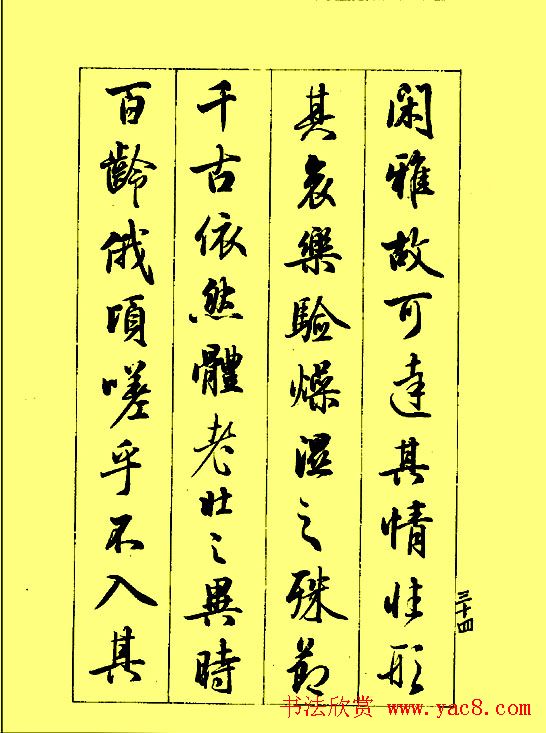 閑雅故可達其情性形
其哀樂驗燥濕之殊節
千古依然體老壯之異時
百齡俄頃嗟乎不入其
三十四
书法欣赏 www.yac8.com